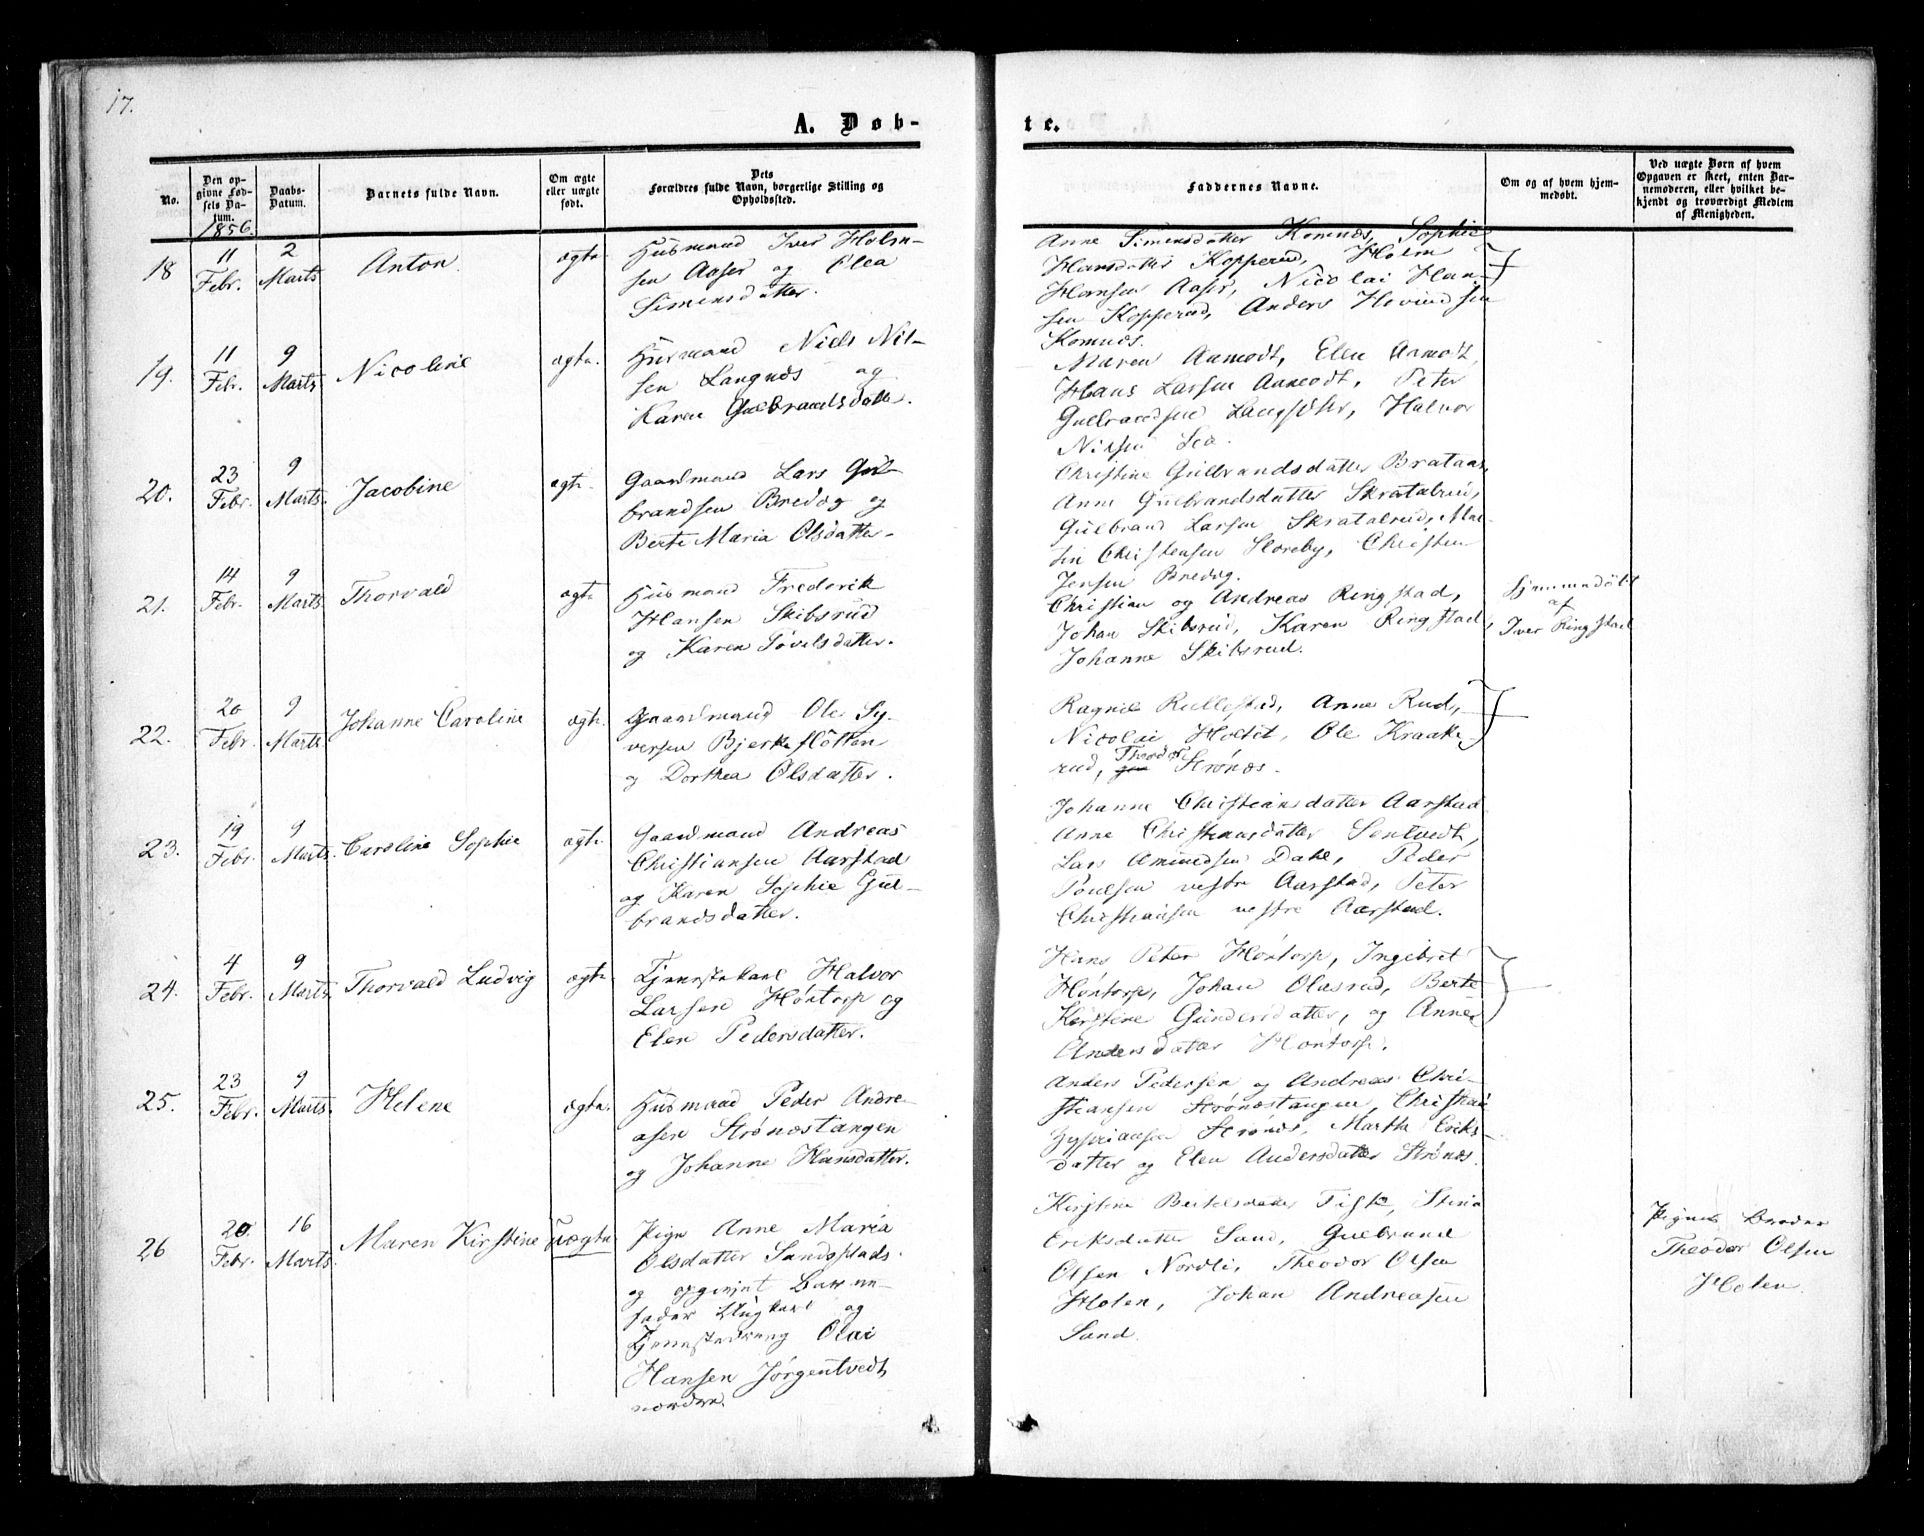 17.
A. Døb-
te.
No.
Den op-
givne Fød-
sels Da-
tum.
Daabs-
Datum.
Barnets fulde Navn.
Om ægte
eller uægte
født.
Dets
Forældres fulde Navn, borgerlige Stilling og
Opholdssted.
Faddernes Navne.
Om og af hvem hjem-
medøbt.
Ved uægte Børn af hvem
Opgaven er skeet, enten Bar-
nemoderen, eller hvilket be-
kjendt og troværdigt Medlem
af Menigheden.
1856.
18
11
Febr.
2
Marts
Anton
ægte
Husmand Iver Holm-
sen Aaser og Olea
Simensdatter.
Anne Simensdatter Komnæs, Sophie
Hansdatter Kopperud, Holm
Hansen Aaser, Nicolai Han-
sen Kopperud, Anders Hovindsen
Komnæs.
19.
11
Febr.
9
Marts
Nicoline
ægte.
Husmand Niels Nil-
sen Langnæs og
Karen Gulbrandsdatter.
Maren Aamodt, Elen Aamodt,
Hans Larsen Aamodt, Peter
Gulbrandsen, Halvor
Nilsen
20.
23
Febr.
9
Marts.
Jacobine
ægte.
Gaardmand Lars Gul-
brandsen Bredvg og
Berte Maria Olsdatter.
Christine Gulbrandsdatter Brataas,
Anne Gulbrandsdatter Skratalrud,
Gulbrand Larsen Skratalrud, Mar-
tin Christensen Storeby, Christen
Jensen Bredvg.
21.
14
Febr.
9
Marts
Thorvald
ægte
Husmand Frederik
Hansen Skibsrud
og Karen Tovelsdatter.
Christian og Andreas Ringstad,
Johan Skibsrud, Karen Ringstad,
Johanne Skibsrud.
Hjemmedøbt
af
Iver Ringstad
22.
20
Febr.
9
Marts
Johanne Caroline
ægte.
Gaardmand Ole Sy-
versen Bjerkesløtten
og Dorthea Olsdatter.
Ragnil Rullestad, Anne Rud,
Nicolai Holtet, Ole Kraake-
rud, Theodor Strønæs.
23.
19
Febr.
9
Marts.
Caroline Sophie
ægte.
Gaardmand Andreas
Christiansen Aarstad
og Karen Sophie Gul-
brandsdatter.
Johanne Christiansdatter Aarstad
Anne Christiansdatter Sentvedt,
Lars Amundsen Dahl, Peder
Poulsen vestre Aarstad, Peter
Christiansen vestre Aarstad.
24.
4
Febr.
9
Marts.
Thorvald Ludvig
ægte.
Tjenestekarl Halvor
Larsen Hóntorp og
Elen Pedersdatter.
Hans Peter Hóntorp, Ingebret
Hóntorp, Johan Olasrud, Berte
Kirstine Gundersdatter, og Anne
Andersdatter Hontorp.
25.
23
Febr.
9
Marts.
Helene
ægte.
Husmand Peder Andre-
asen Strønæstangen
og Johanne Hansdatter.
Anders Pedersen og Andreas Chri-
stiansen Strønæstangen, Christian
Zypriansen Strønæs, Marthe Eriks-
datter og Elen Andersdatter Strønæs.
26
20
Febr.
16
Marts.
Maren Kirstine
uægte
Pige Anne Maria
Olsdatter Sandsstads.
og opgivet Barne-
fader Ungkarl og
Tjenestedreng Olai
Hansen Jørgentvedt
nordre.
Kirstine Bertelsdatter Fisk, Stina
Eriksdatter Sand, Gulbrand
Olsen Nordli, Theodor Olsen
Holen, Johan Andreasen
Sand.
Pigens Broder
Theodor Olsen
Holen.